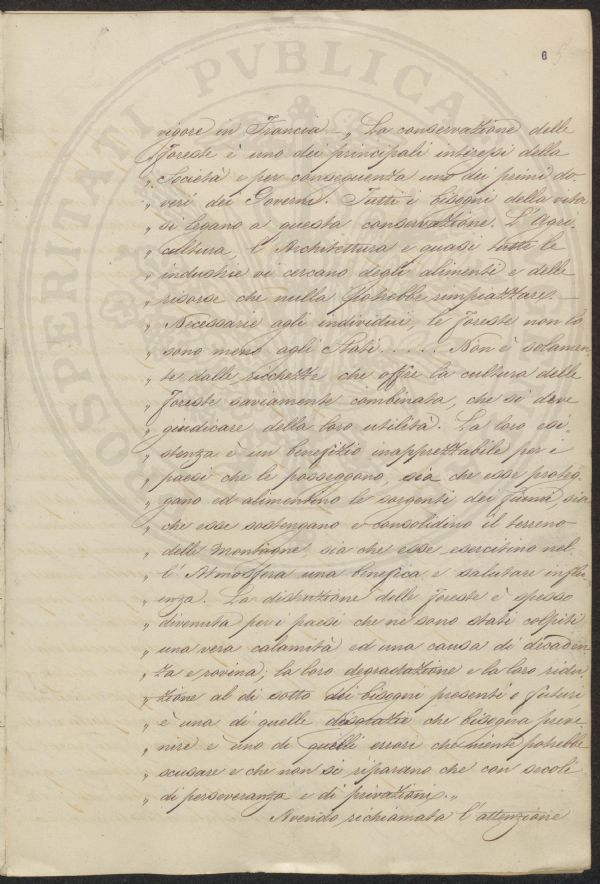 PROSPERITATI PVBLICAE
6
5
vigore in Francia – „ La conservazione delle
„ Foreste è uno dei principali interessi della
„ Società e per conseguenza uno dei primi do„
„ veri dei Governi. Tutti i bisogni della vita
„ si legano a questa conservazione. L'Agri„
„ cultura, l'Architettura e quasi tutte le
„ industrie vi cercano degli alimenti e delle
„ risorse che nulla potrebbe rimpiazzare. –
„ Necessarie agli individui, le foreste non lo
„ sono meno agli Stati..... Non è solamen„
„ te dalle ricchezze che offre la cultura delle
„ Foreste saviamente combinata, che si deve
„ giudicare della loro utilità. La loro esi„
„ stenza è un benefizio inapprezzabile per i
„ paesi che le posseggono, sia che esse proteg„
„ gano ed alimentino le sorgenti dei fiumi, sia
„ che esse sostengano e consolidino il terreno
„ delle montagne, sia che esse esercitino nel„
„ l'Atmosfera una benefica e salutare influ„
„ enza. La distruzione delle foreste è spesso
„ divenuta per i paesi che ne sono stati colpiti
„ una vera calamità ed una causa di decaden„
„ za e rovina; la loro degradazione e la loro ridu„
„ zione al di sotto dei bisogni presenti e futuri
„ è una di quelle disgrazie che bisogna preve„
„ nire e uno di quelli errori che niente potrebbe
„ scusare e che non si riparano che con secoli
„ di perseveranza e di privazioni. „
Avendo richiamata l'attenzione